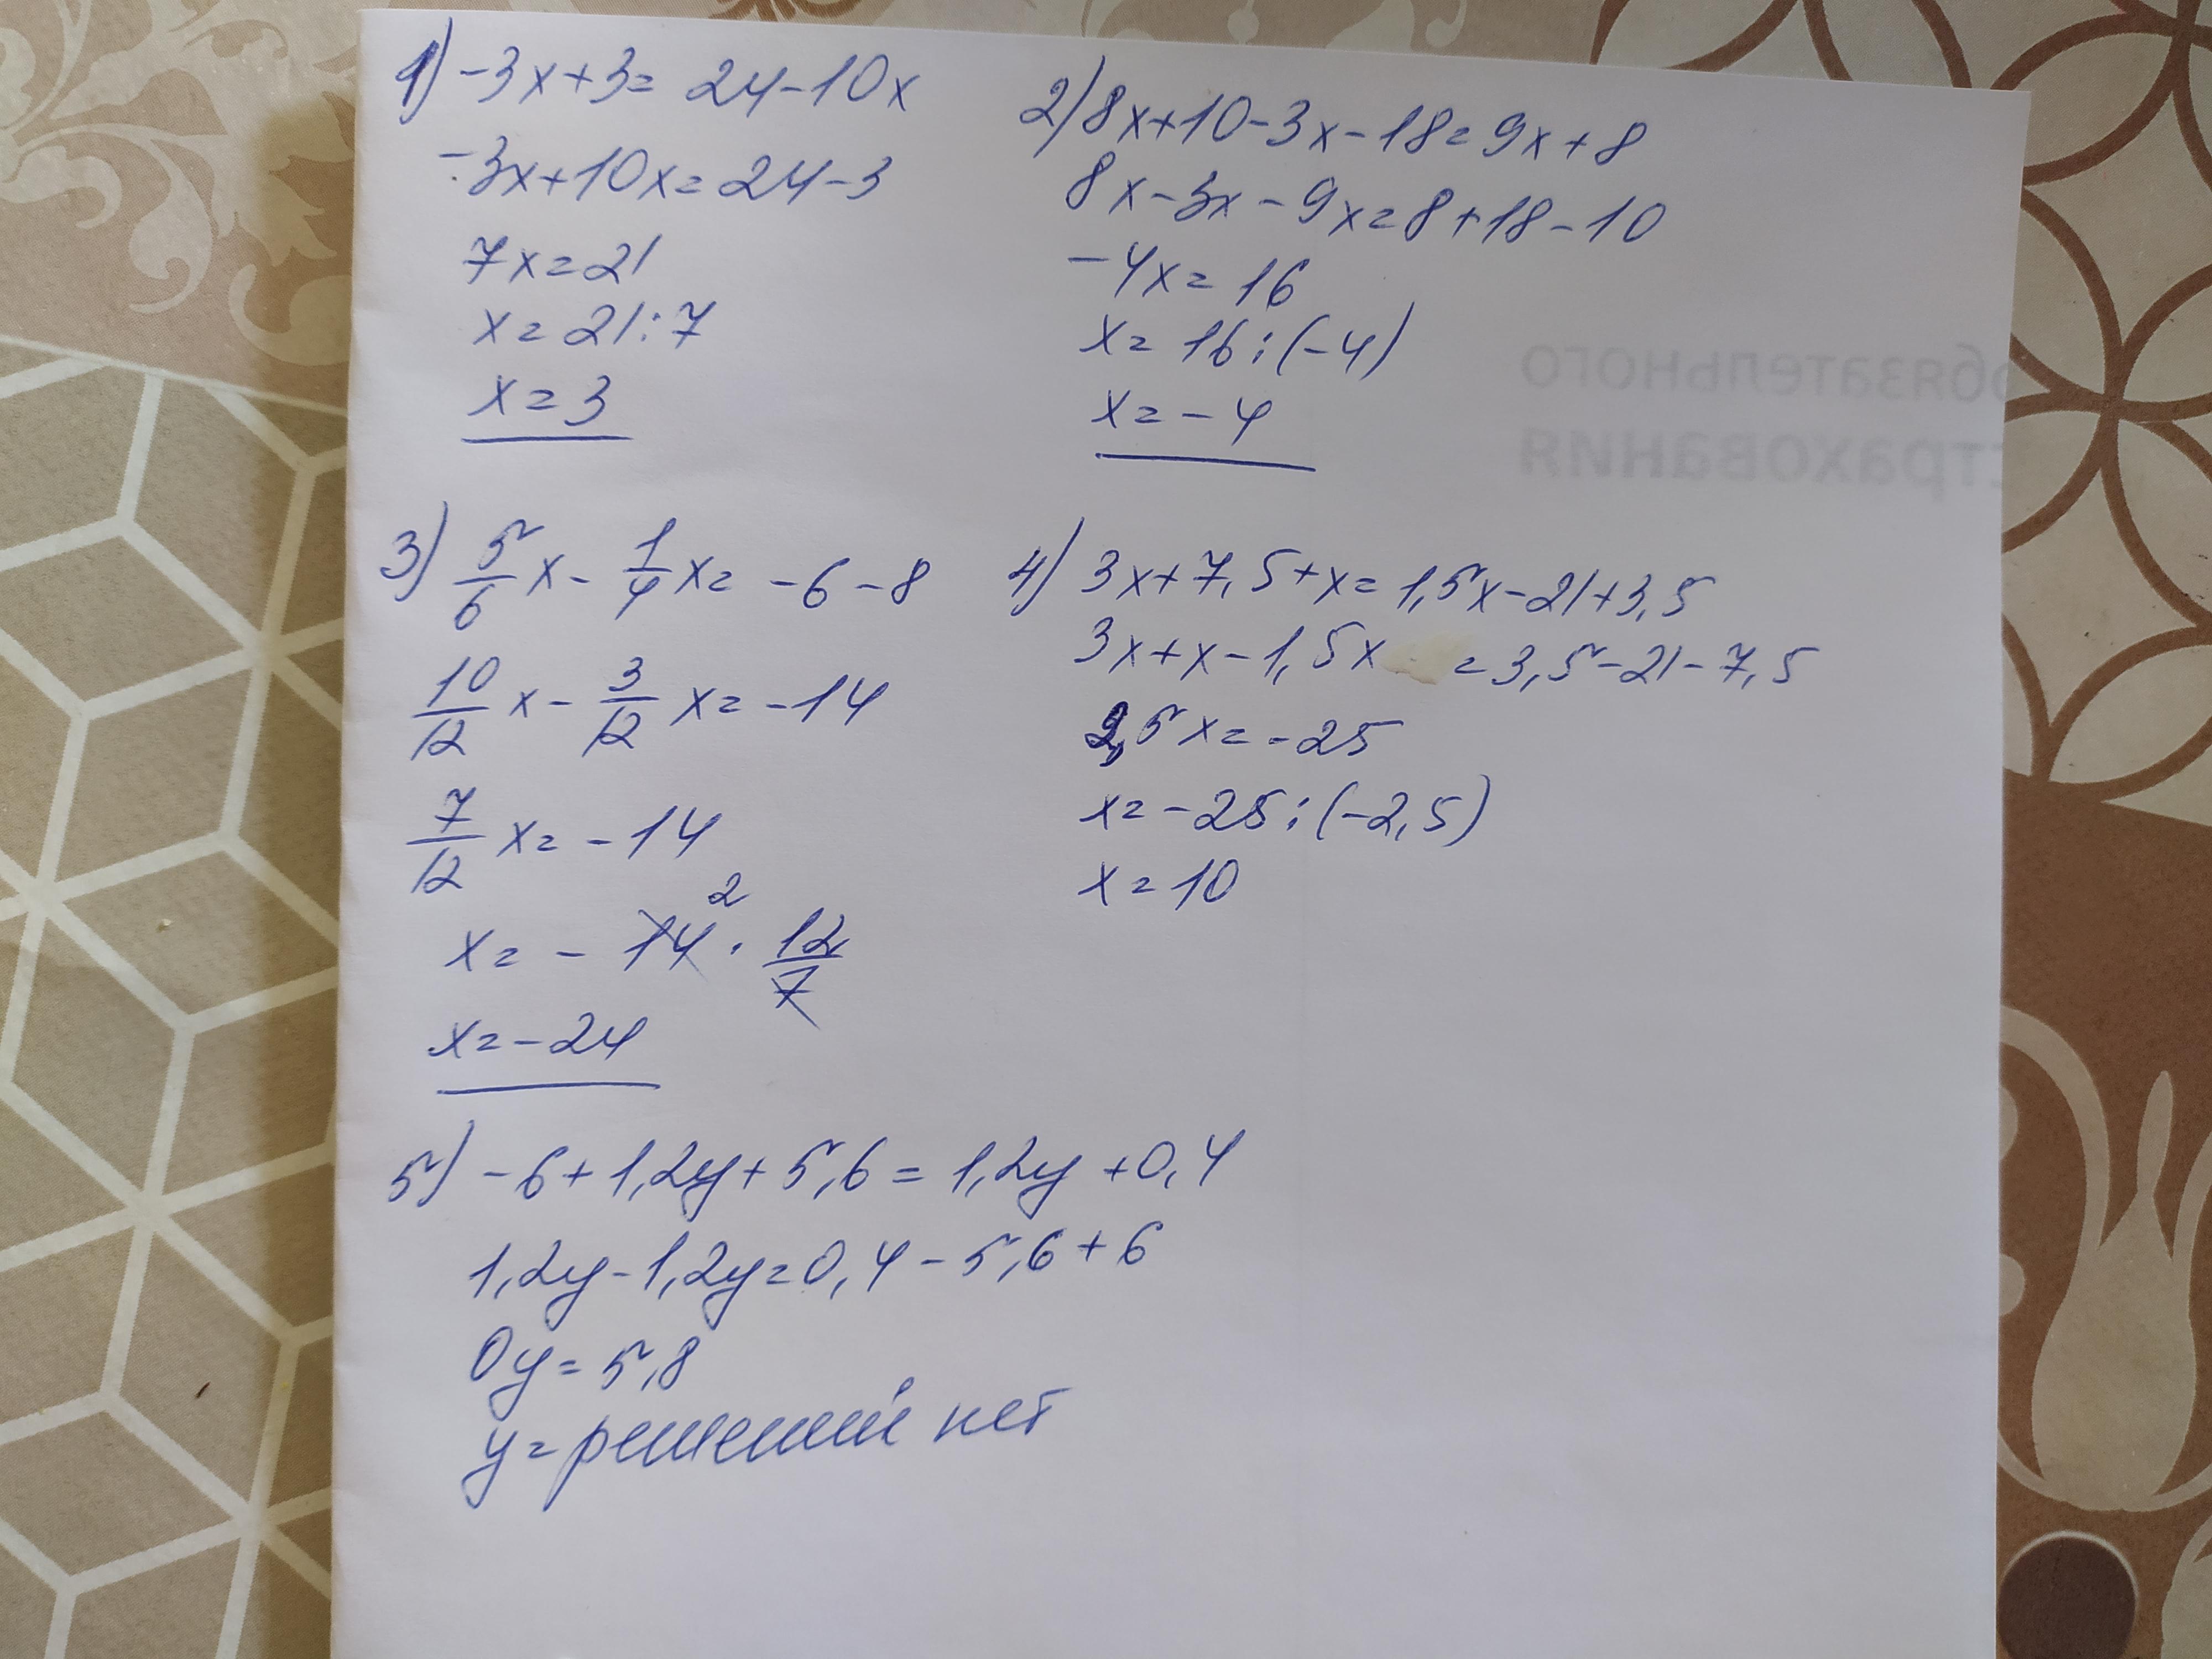 1) -3x+3= 24-10x
-3x+10x=24-3
7x=21
x=21:7
x=3
2) 8x+10-3x-18=9x+8
8x-3x-9x=8+18-10
-4x=16
x=16:(-4)
x=-4
обязательного
страхования
3) 5/6 x - 1/4 x = -6-8
10/12 x - 3/12 x = -14
7/12 x = -14
2
x = -14 · 12/7
x=-24
4) 3x+7,5+x=1,5x-21+3,5
3x+x-1,5x =3,5-21-7,5
2,5x=-25
x=-25:(-2,5)
x=10
5) -6+1,2y+5,6=1,2y+0,4
1,2y-1,2y=0,4-5,6+6
0y=5,8
y=решений нет